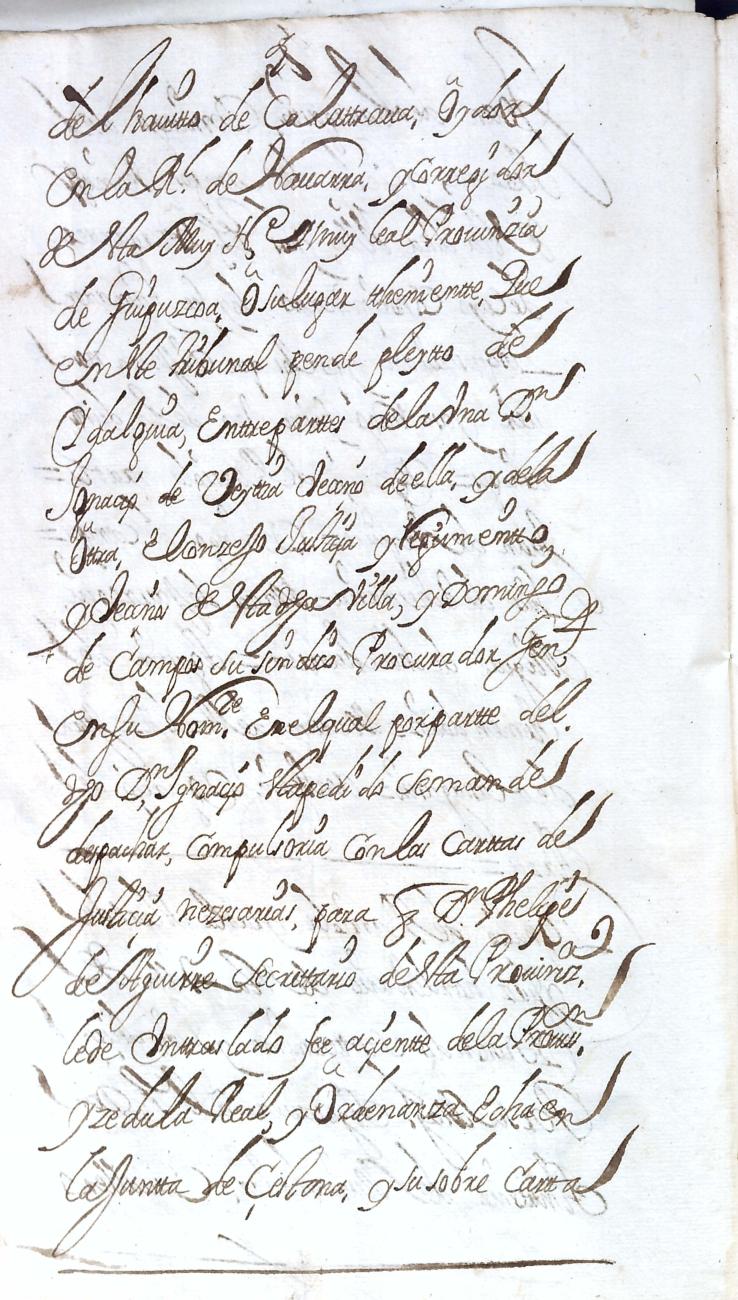 del hauitto de Calattraua, Oydor
en la Rl. de Nauarra, y Corregidor
de esta Muy Ne. y muy leal Prouinzia
de Guipuzcoa, o su lugar thenientte, Que
en este tribunal pende pleytto de
Ydalguia, Enttre parttes de la Vna Dn.
Ignacio de Veytia Vecino de ella, y de la
Ottra, el Conzejo Justicia y Regimientto,
y Vecinos de esta dha Villa, y Domingo
de Campos su sindico Procurador Genl.
en su Nomre. En el qual por partte del
dho Dn. Ignacio sta pedido se mande
despachar, Compulsoria Con las Carttas de
Justicia nezesarias, para q Dn. Phelipe
de Aguirre Secrettario de esta Prouinza.
le de Vn traslado fee acientte de la Prouon.
y zedula Real, y Ordenanza Echa en
la Juntta de Cestona, y su sobre Cartta